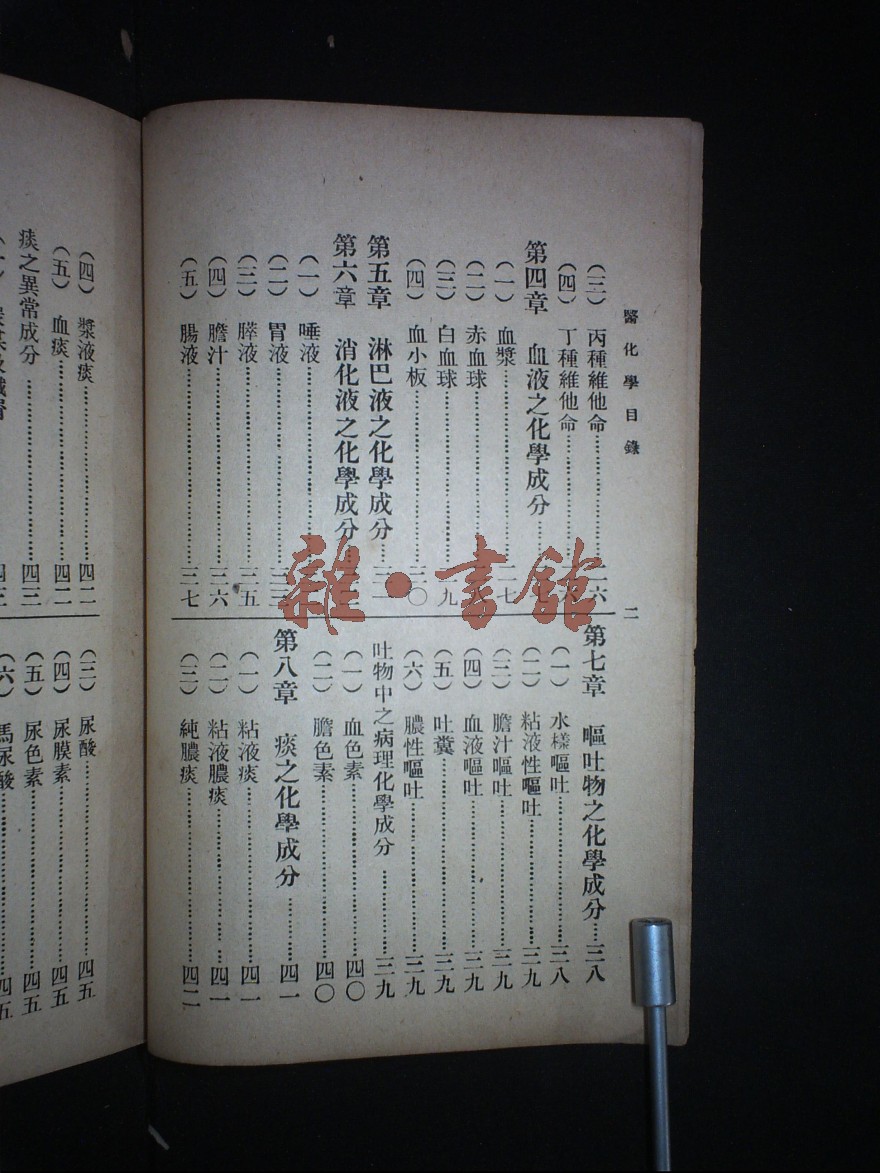 醫化學目錄
二
（三） 丙種維他命……二六
（四） 丁種維他命……
第四章 血液之化學成分……
（一） 血漿……
（二） 赤血球……
（三） 白血球……
（四） 血小板……
第五章 淋巴液之化學成分……
第六章 消化液之化學成分……
（一） 唾液……
（二） 胃液……
（三） 膵液……三五
（四） 膽汁……三六
（五） 腸液……三七
第七章 嘔吐物之化學成分……三八
（一） 水樣嘔吐……三八
（二） 粘液性嘔吐……三九
（三） 膽汁嘔吐……三九
（四） 血液嘔吐……三九
（五） 吐糞……三九
（六） 膿性嘔吐……三九
吐物中之病理化學成分……三九
（一） 血色素……四〇
（二） 膽色素……四〇
第八章 痰之化學成分……四一
（一） 粘液痰……四一
（二） 粘液膿痰……四一
（三） 純膿痰……四二
（四） 漿液痰……四二
（五） 血痰……四二
痰之異常成分……四三
（三） 尿酸……四五
（四） 尿膜素……四五
（五） 尿色素……四五
（六） 馬尿酸……四五
雜·書館